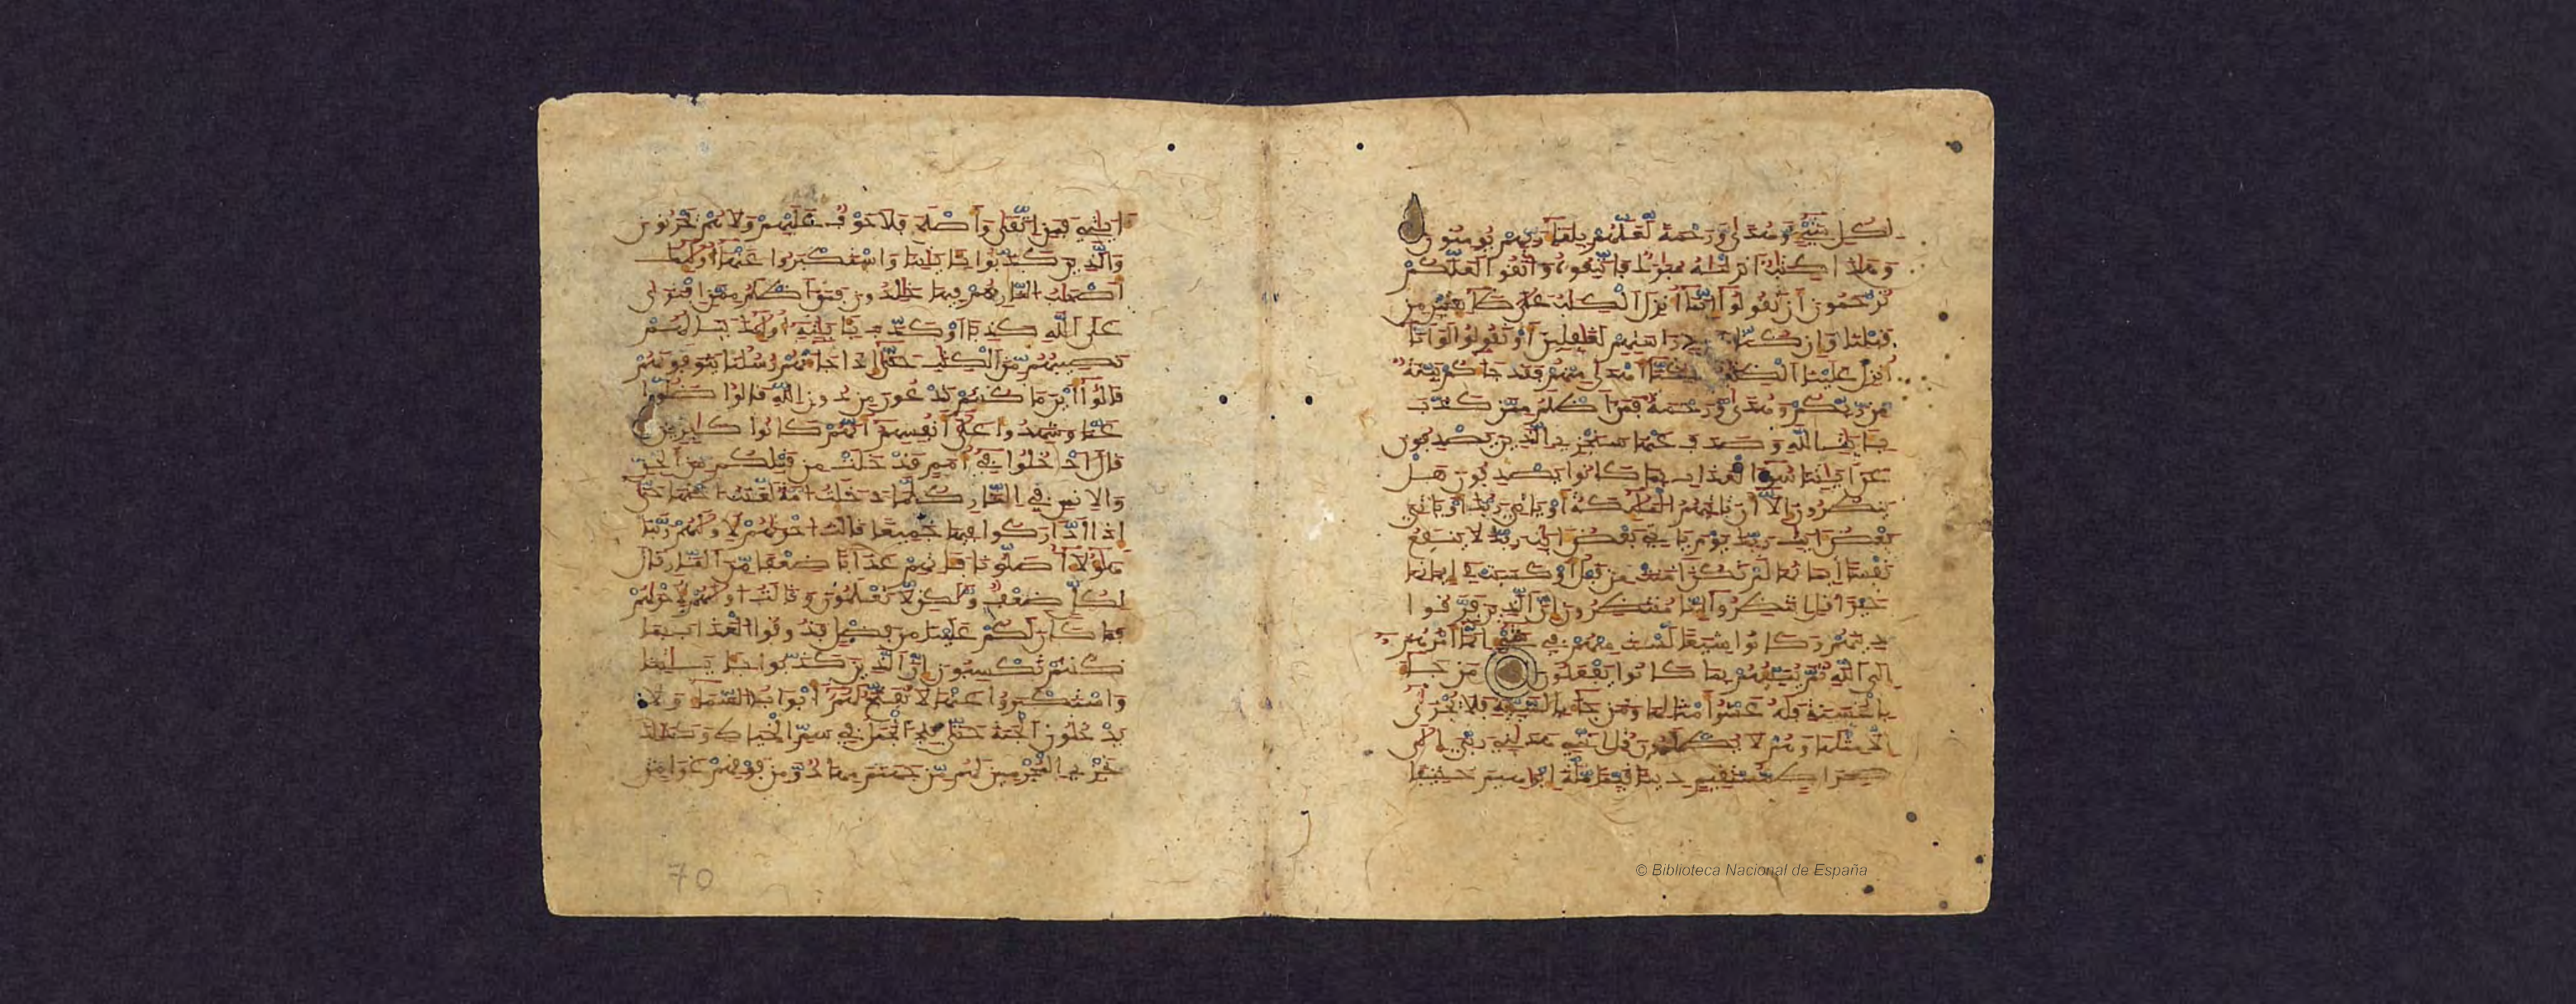 لكل شيء وهدى ورحمة لعلهم بلقاء ربهم يومنون
وهذا كتب انزلنه مبرك فاتبعوه واتقوا لعلكم
ترحمون ان تقولوا انما انزل الكتب على طائفتين من
قبلنا وان كنا عن دراستهم لغفلين او تقولوا لو انا
انزل علينا الكتب لكنا اهدى منهم فقد جاكم بينة
من ربكم وهدى ورحمة فمن اظلم ممن كذب
بايت الله وصدف عنها سنجزي الذين يصدفون
عن ايتنا سوء العذاب بما كانوا يصدفون هل
ينظرون الا ان تاتيهم الملئكة او ياتي ربك او ياتي
بعض ايت ربك يوم ياتي بعض ايت ربك لا ينفع
نفسا ايمانها لم تكن امنت من قبل او كسبت في ايمانها
خيرا قل انتظروا انا منتظرون ان الذين فرقوا
دينهم وكانوا شيعا لست منهم في شيء انما امرهم
الى الله ثم ينبئهم بما كانوا يفعلون من جاء
بالحسنة فله عشر امثالها ومن جاء بالسيئة فلا يجزى
الا مثلها وهم لا يظلمون قل انني هدني ربي الى
صرط مستقيم دينا قيما ملة ابرهيم حنيفا
ايتي فمن اتقى واصلح فلا خوف عليهم ولا هم يحزنون
والذين كذبوا بايتنا واستكبروا عنها اولئك
اصحب النار هم فيها خلدون فمن اظلم ممن افترى
على الله كذبا او كذب بايته اولئك ينالهم
نصيبهم من الكتب حتى اذا جاتهم رسلنا يتوفونهم
قالوا اين ما كنتم تدعون من دون الله قالوا ضلوا
عنا وشهدوا على انفسهم انهم كانوا كفرين
قال ادخلوا في امم قد خلت من قبلكم من الجن
والانس في النار كلما دخلت امة لعنت اختها حتى
اذا اداركوا فيها جميعا قالت اخريهم لاوليهم ربنا
هولا اضلونا فاتهم عذابا ضعفا من النار قال
لكل ضعف ولكن لا تعلمون وقالت اوليهم لاخريهم
فما كان لكم علينا من فضل فذوقوا العذاب بما
كنتم تكسبون ان الذين كذبوا بايتنا
واستكبروا عنها لا تفتح لهم ابواب السماء ولا
يدخلون الجنة حتى يلج الجمل في سم الخياط وكذلك
نجزي المجرمين لهم من جهنم مهاد ومن فوقهم غواش
70
© Biblioteca Nacional de España